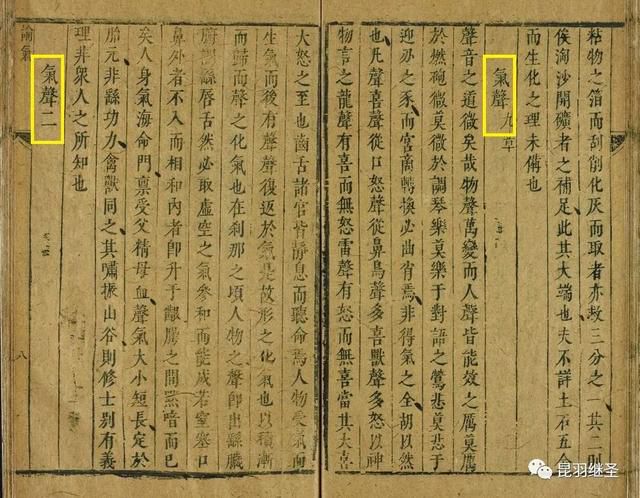 粘物之箔而刮削化灰而取者亦救三分之一其二則
俟淘沙開礦者之補足此其大端也夫不詳土石五金
而生化之理未備也
氣聲九章
聲音之道微矣哉物聲萬變而人聲皆能效之厲莫厲
於燃砲微莫微於調琴樂莫樂于對語之鶯悲莫悲于
迎刃之豕而宮商轉換必曲肖焉非得氣之全胡以然
也凡聲喜聲從口怒聲從鼻鳥聲多喜獸聲多怒以神
物言之龍聲有喜而無怒雷聲有怒而無喜當其大喜
大怒之至也齒舌諸官皆靜息而聽命焉人物受氣而
生氣而後有聲聲復返於氣是故形之化氣也以積漸
而歸而聲之化氣也在刹那之頃人物之聲即出繇臟
腑調繇唇舌然必取虛空之氣參和而能成若窒塞口
鼻外者不入而相和內者即升于腭之間默喑而已
矣人身氣海命門禀受父精母血聲氣大小短長定於
胎元非繇功力禽獸同之其嘯振山谷則修士別有義
理非衆人之所知也
氣聲二
論氣
八
昆羽继圣